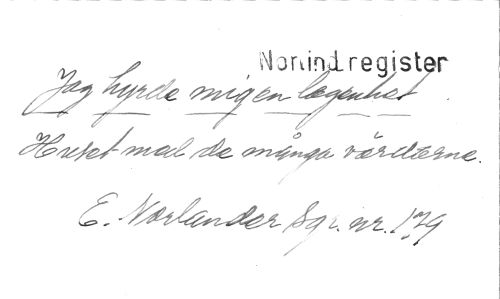 Norlind.register
Jag hyrde mig en lägenhet.
Huset med de många värdarne.
E. Norlander Sgr. nr. 179